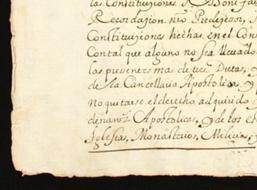 las Constituziones
Recordazion nro Predezesor,
Constituziones hechas en el Con
Contal que alguno no sea lleuado
las presentes mas de tres Dietas, y
de la Cancellaria Apostolica, y
No quitare el derecho adquirido
Apostolicos, y de los
Iglesias, Monasterios, Milicias, y